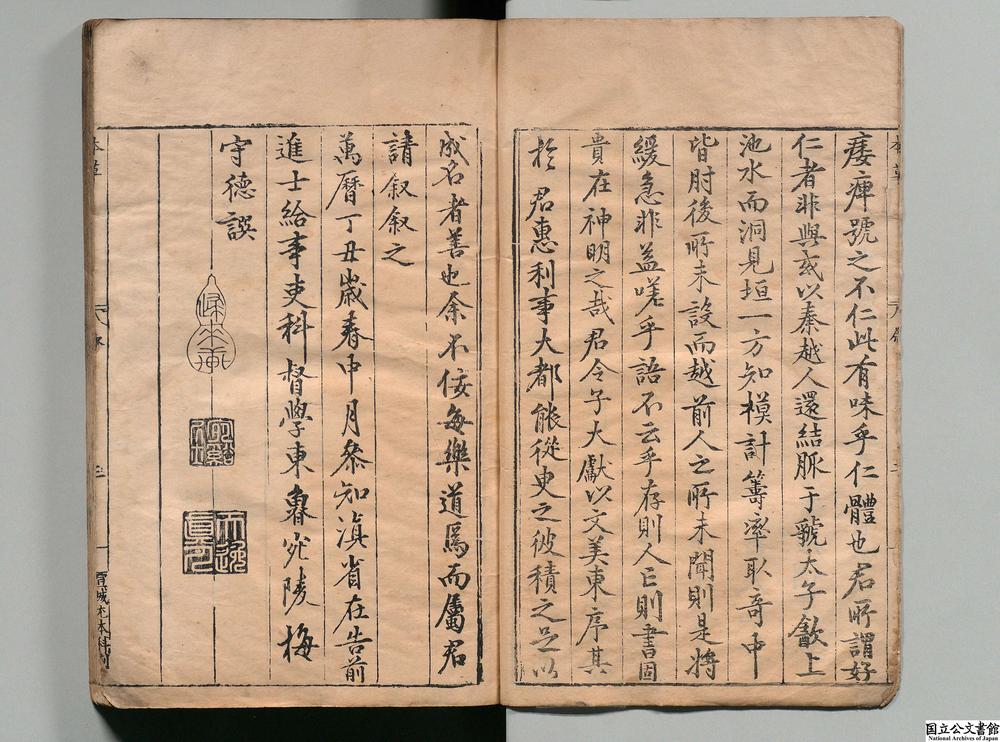 痿痺號之不仁此有味乎仁體也君所謂好
仁者非與或以秦越人還結脈于虢太子歠上
池水而洞見垣一方知模計籌率取奇中
皆肘後所未設而越前人之所未聞則是將
緩急非益嗟乎語不云乎存則人亡則書固
貴在神明之哉君令子大獻以文美東序其
於君惠利事大都能從臾之彼積之足以
成名者善也余不佞每樂道焉而屬君
請叙叙之
萬曆丁丑歲春中月叅知滇省在告前
進士給事吏科督學東魯宛陵梅
守德譔
本草
三
國立公文書館
National Archives of Japan